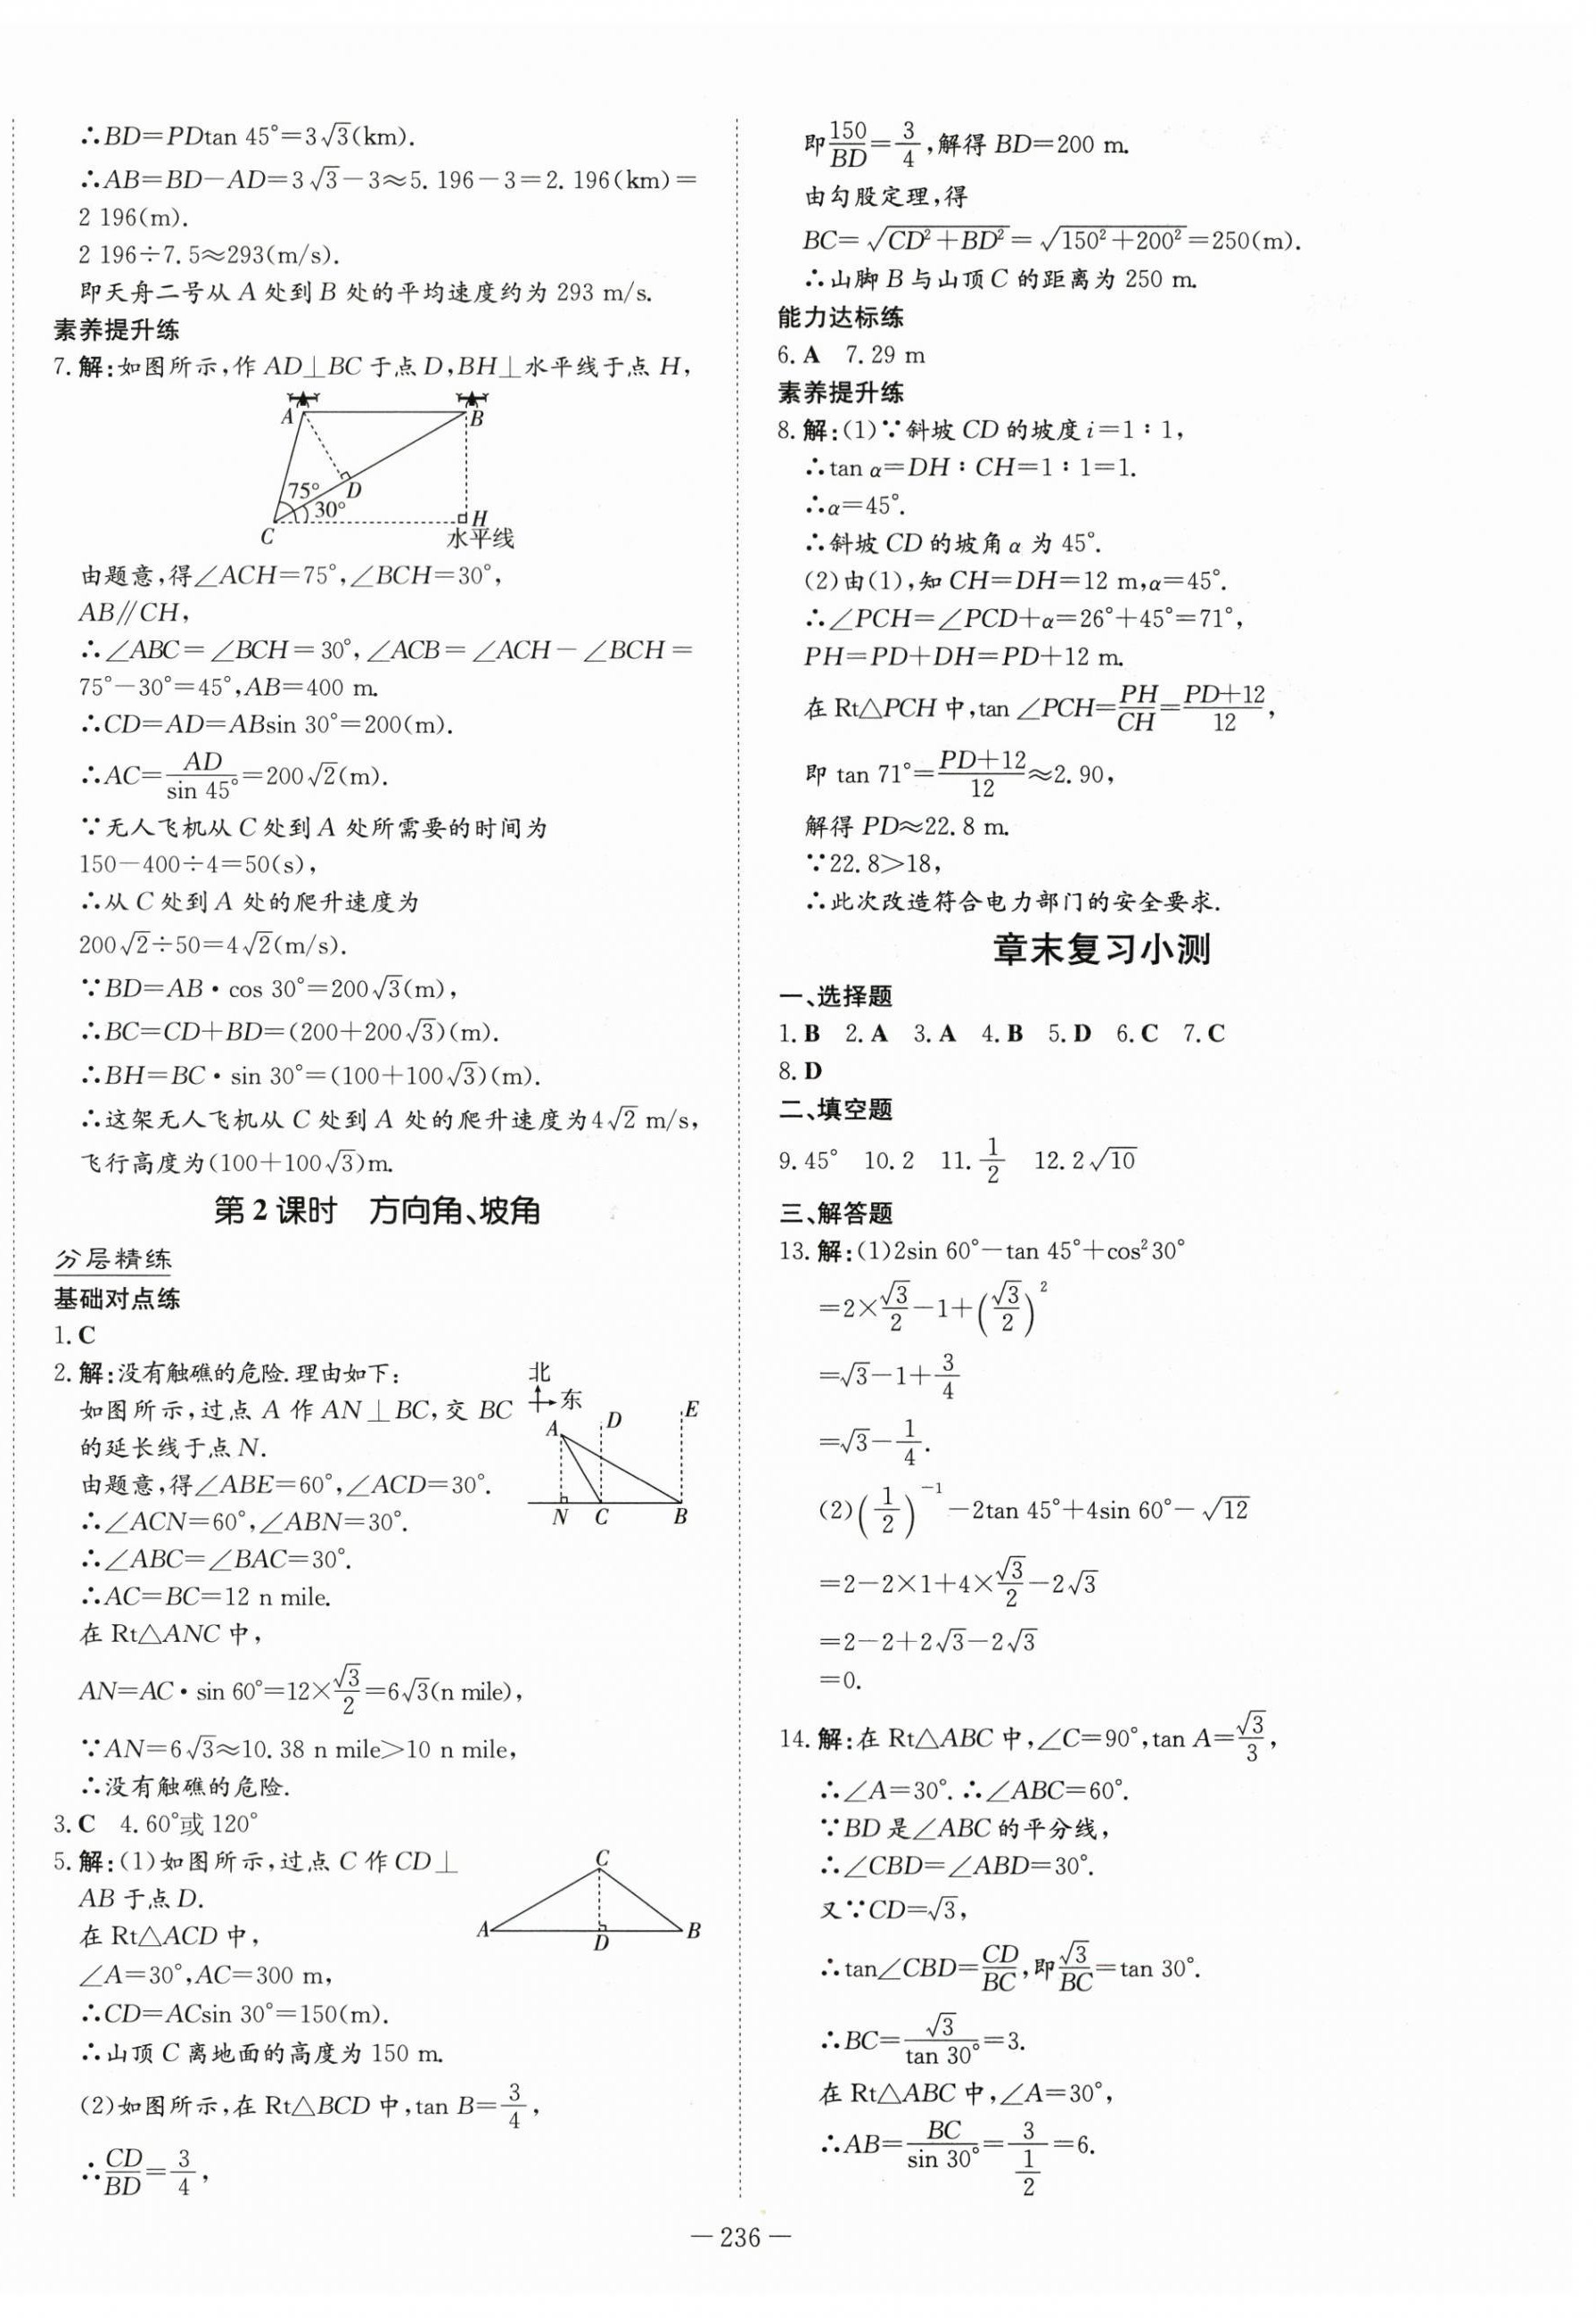 ∴BD=PDtan 45°=3√3(km).
∴AB=BD-AD=3√3-3≈5.196-3=2.196(km)=
2 196(m).
2 196÷7.5≈293(m/s).
即天舟二号从 A 处到 B 处的平均速度约为 293 m/s.
素养提升练
7.解:如图所示,作 AD⊥BC 于点 D,BH⊥水平线于点 H,
A
B
75°
D
30°
C
H
水平线
由题意,得∠ACH=75°,∠BCH=30°,
AB∥CH,
∴∠ABC=∠BCH=30°,∠ACB=∠ACH-∠BCH=
75°-30°=45°,AB=400 m.
∴CD=AD=ABsin 30°=200(m).
∴AC=AD/sin 45°=200√2(m).
∵无人飞机从 C 处到 A 处所需要的时间为
150-400÷4=50(s),
∴从 C 处到 A 处的爬升速度为
200√2÷50=4√2(m/s).
∵BD=AB·cos 30°=200√3(m),
∴BC=CD+BD=(200+200√3)(m).
∴BH=BC·sin 30°=(100+100√3)(m).
∴这架无人飞机从 C 处到 A 处的爬升速度为4√2 m/s,
飞行高度为(100+100√3)m.
第 2 课时 方向角、坡角
分层精练
基础对点练
1.C
2.解:没有触礁的危险.理由如下:
如图所示,过点 A 作 AN⊥BC,交 BC
的延长线于点 N.
由题意,得∠ABE=60°,∠ACD=30°.
北
东
A
D
E
N C B
∴∠ACN=60°,∠ABN=30°.
∴∠ABC=∠BAC=30°.
∴AC=BC=12 n mile.
在 Rt△ANC 中,
AN=AC·sin 60°=12×√3/2=6√3(n mile),
∵AN=6√3≈10.38 n mile>10 n mile,
∴没有触礁的危险.
3.C 4.60°或 120°
5.解:(1)如图所示,过点 C 作 CD⊥
AB 于点 D.
C
A
D
B
在 Rt△ACD 中,
∠A=30°,AC=300 m,
∴CD=ACsin 30°=150(m).
∴山顶 C 离地面的高度为 150 m.
(2)如图所示,在 Rt△BCD 中,tan B=3/4,
∴CD/BD=3/4,
即150/BD=3/4,解得 BD=200 m.
由勾股定理,得
BC=√(CD²+BD²)=√(150²+200²)=250(m).
∴山脚 B 与山顶 C 的距离为 250 m.
能力达标练
6.A 7.29 m
素养提升练
8.解:(1)∵斜坡 CD 的坡度 i=1∶1,
∴tan α=DH∶CH=1∶1=1.
∴α=45°.
∴斜坡 CD 的坡角 α 为 45°.
(2)由(1),知 CH=DH=12 m,α=45°.
∴∠PCH=∠PCD+α=26°+45°=71°,
PH=PD+DH=PD+12 m.
在 Rt△PCH 中,tan ∠PCH=PH/CH=(PD+12)/12,
即 tan 71°=(PD+12)/12≈2.90,
解得 PD≈22.8 m.
∵22.8>18,
∴此次改造符合电力部门的安全要求.
章末复习小测
一、选择题
1.B 2.A 3.A 4.B 5.D 6.C 7.C
8.D
二、填空题
9.45° 10.2 11.1/2 12.2√10
三、解答题
13.解:(1)2sin 60°-tan 45°+cos²30°
=2×√3/2-1+(√3/2)²
=√3-1+3/4
=√3-1/4.
(2)(1/2)⁻¹-2tan 45°+4sin 60°-√12
=2-2×1+4×√3/2-2√3
=2-2+2√3-2√3
=0.
14.解:在 Rt△ABC 中,∠C=90°,tan A=√3/3,
∴∠A=30°.∴∠ABC=60°.
∵BD 是∠ABC 的平分线,
∴∠CBD=∠ABD=30°.
又∵CD=√3,
∴tan∠CBD=CD/BC,即√3/BC=tan 30°.
∴BC=√3/tan 30°=3.
在 Rt△ABC 中,∠A=30°,
∴AB=BC/sin 30°=3/(1/2)=6.
— 236 —